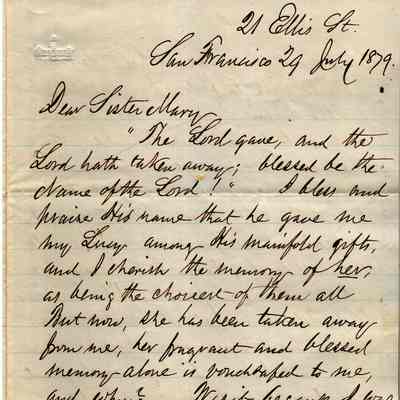 21 Ellis St.
San Francisco 29 July 1879.
Dear Sister Mary
"The Lord gave, and the
Lord hath taken away; blessed be the
Name of the Lord!" I bless and
praise His name that he gave me
my Lucy among His manifold gifts,
and I cherish the memory of her,
as being the choicest of them all
But now, she has been taken away
from me, her fragrant and blessed
memory alone is vouchsafed to me,
and why? Was it because I was